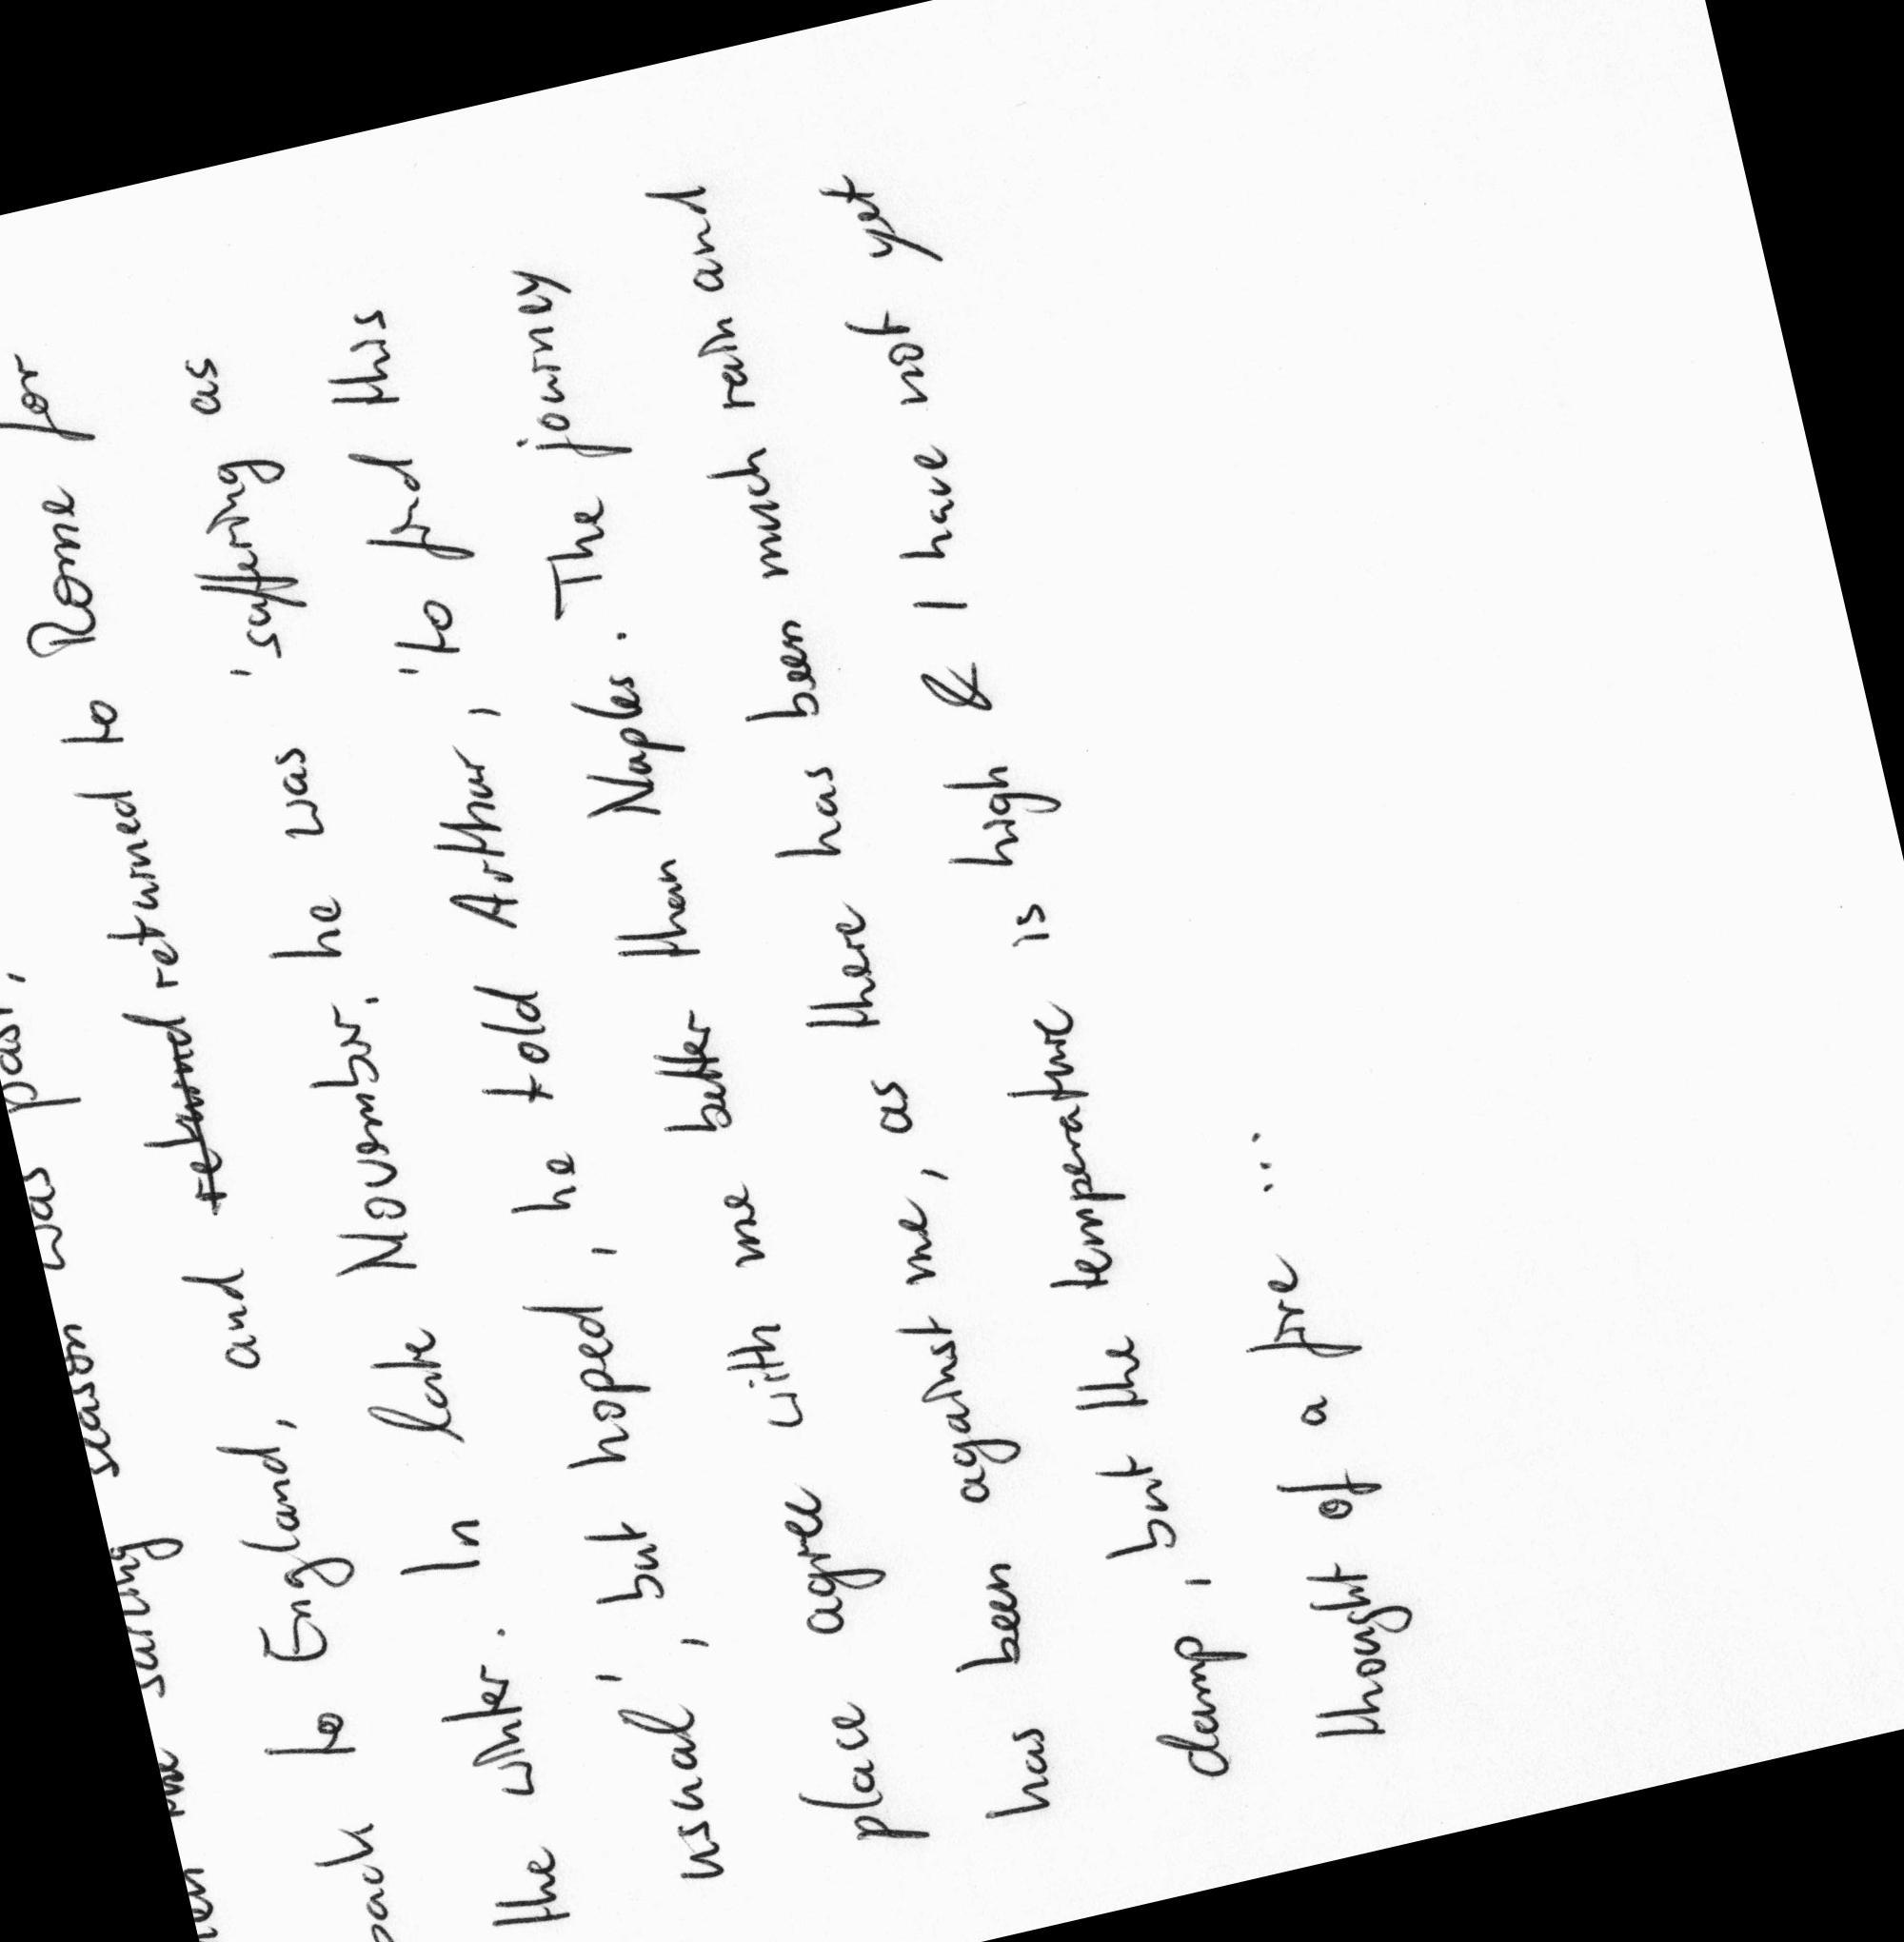 the sailing season was past,
back to England, and ~~returnd~~ returned to Rome for
the winter. In late November, he was 'suffering as
usual', but hoped, he told Arthur, 'to find this
place agree with me better than Naples. The journey
has been against me, as there has been much rain and
damp, but the temperature is high & I have not yet
thought of a fire ...